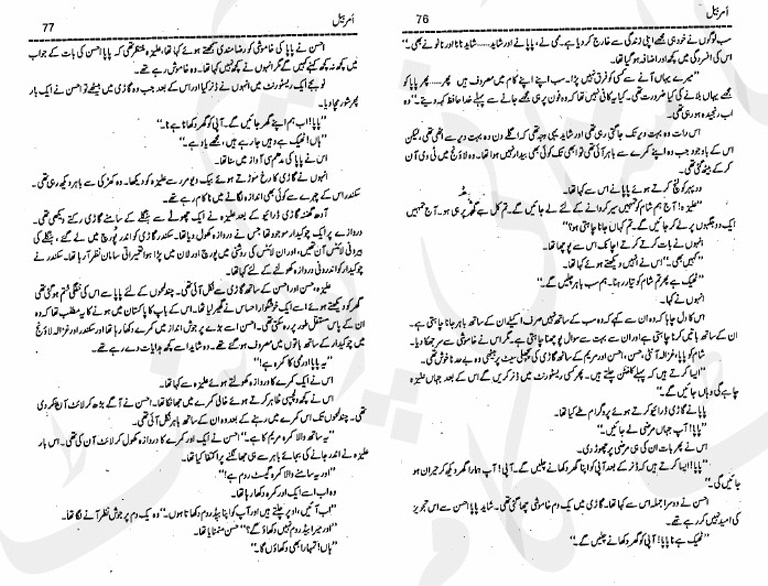 76 اَمر بیل
سب لوگوں نے خود ہی مجھے اپنی زندگی سے خارج کر دیا ہے۔ ممی نے، پاپا نے اور شاید...... شاید نانا اور نانو نے بھی۔"
اس کی افسردگی میں کچھ اور اضافہ ہو گیا تھا۔
"میرے یہاں آنے سے کسی کو فرق نہیں پڑا۔ سب اپنے اپنے کام میں مصروف ہیں پھر...... پھر پاپا کو
مجھے یہاں بلانے کی کیا ضرورت تھی۔ کیا یہ کافی نہیں تھا کہ وہ فون پر ہی مجھے جانے سے پہلے خدا حافظ کہہ دیتے۔" وہ
اب رنجیدہ ہو رہی تھی۔
اس رات وہ بہت دیر تک جاگتی رہی تھی اور شاید یہی وجہ تھی کہ اگلے دن وہ بہت دیر سے اٹھی تھی، لیکن
اس کے باوجود جب وہ اپنے کمرے سے باہر آئی تھی تو ابھی تک کوئی بھی بیدار نہیں ہوا تھا۔ وہ لاؤنج میں ٹی وی آن
کر کے بیٹھ گئی تھی۔
دوپہر کو لنچ کرتے ہوئے پاپا نے اس سے کہا تھا۔
"علیزہ! آج ہم شام کو تمہیں سیر کروانے کے لئے لے جائیں گے۔ تم کل سے گھر پر ہی ہو۔ آج تمہیں
ایک دو جگہوں پر لے کر جائیں گے۔ تم کہاں جانا چاہتی ہو؟"
انہوں نے بات کرتے کرتے اچانک اس سے پوچھا تھا۔
"کہیں بھی۔" اس نے انہیں دیکھتے ہوئے کہا تھا۔
"ٹھیک ہے پھر تم شام کو تیار رہنا۔ ہم سب باہر چلیں گے۔"
انہوں نے کہا۔
اس کا دل چاہا تھا کہ وہ ان سے کہے کہ وہ سب کے ساتھ نہیں صرف اکیلے ان کے ساتھ باہر جانا چاہتی ہے۔
ان کے ساتھ باتیں کرنا چاہتی ہے اور ان سے بہت سے سوال پوچھنا چاہتی ہے۔ مگر اس نے خاموشی سے سر جھکا دیا۔
شام کو پاپا، غزالہ آنٹی، حسن، احسن اور مریم کے ساتھ گاڑی کی پچھلی سیٹ پر بیٹھی وہ بے حد ناخوش تھی۔
"ایسا کرتے ہیں کہ پہلے کلفٹن چلتے ہیں۔ پھر کسی ریسٹورنٹ میں ڈنر کریں گے اس کے بعد جہاں علیزہ
چاہے گی وہاں جائیں گے۔"
پاپا نے گاڑی ڈرائیو کرتے ہوئے پروگرام طے کیا تھا۔
"پاپا! آپ جہاں مرضی لے جائیں۔"
اس نے پھر بات ان کی ہی مرضی پر چھوڑ دی۔
"پاپا! ایسا کرتے ہیں کہ ڈنر کے بعد آپی کو اپنا گھر دکھانے چلیں گے۔ آپی! آپ ہمارا گھر دیکھ کر حیران ہو
جائیں گی۔"
احسن نے دوسرا جملہ اس سے کہا تھا۔ گاڑی میں یک دم خاموشی چھا گئی تھی۔ شاید پاپا احسن سے اس تجویز
کی امید نہیں کر رہے تھے۔
"ٹھیک ہے نا پاپا! آپی کو گھر دکھانے چلیں گے۔"
77 اَمر بیل
احسن نے پاپا کی خاموشی کو رضامندی سمجھتے ہوئے کہا تھا۔ علیزہ منتظر تھی کہ پاپا احسن کی بات کے جواب
میں کچھ نہ کچھ کہیں گے مگر انہوں نے کچھ نہیں کہا تھا۔ وہ خاموش رہے تھے۔
نو بجے ایک ریسٹورنٹ میں انہوں نے ڈنر کیا اور اس کے بعد جب وہ گاڑی میں بیٹھے تو احسن نے ایک بار
پھر شور مچا دیا۔
"پاپا! اب ہم اپنے گھر جائیں گے۔ آپی کو گھر دکھانا ہے نا۔"
"ہاں! ٹھیک ہے وہیں جا رہے ہیں۔ مجھے یاد ہے۔"
اس نے پاپا کی مدھم سی آواز میں سنا تھا۔
انہوں نے گاڑی کا رخ موڑتے ہوئے بیک ویو مرر سے علیزہ کو دیکھا۔ وہ کھڑکی سے باہر دیکھ رہی تھی۔
سکندر اس کے چہرے سے کوئی بھی اندازہ لگانے میں ناکام رہے تھے۔
آدھ گھنٹہ گاڑی ڈرائیو کے بعد علیزہ نے ایک چھوٹے سے بنگلے کے سامنے گاڑی رکتے دیکھی تھی۔
دروازے پر ایک چوکیدار موجود تھا جس نے دروازہ کھول دیا تھا۔ سکندر گاڑی کو اندر پورچ میں لے گئے، بنگلے کی
بیرونی لائٹس آن تھیں، اور ان لائٹس کی روشنی میں پورچ اور لان میں پڑا ہوا تعمیراتی سامان نظر آ رہا تھا۔ سکندر نے
چوکیدار کو اندرونی دروازہ کھولنے کے لئے کہا تھا۔
علیزہ، حسن اور احسن کے ساتھ گاڑی سے نکل آئی تھی۔ چند لمحوں کے لئے پاپا سے اس کی خفگی ختم ہو گئی تھی
گھر کو دیکھتے ہوئے اسے ایک خوشگوار احساس نے گھیر لیا تھا۔ اس کے باپ کا پاکستان میں ہونے کا یہ مطلب تھا کہ وہ
ان کے پاس مستقل طور پر رہ سکتی تھی۔ احسن اسے بڑے پر جوش انداز میں کمرے دکھا رہا تھا اور سکندر اور غزالہ لاؤنج
میں چوکیدار کے ساتھ باتوں میں مصروف ہو گئے تھے۔ وہ شاید اسے کچھ ہدایات دے رہے تھے۔
"یہ پاپا اور ممی کا کمرہ ہے!"
اس نے ایک کمرے کا دروازہ کھولتے ہوئے علیزہ سے کہا تھا۔
اس نے کچھ دلچسپی ظاہر کرتے ہوئے خالی کمرے میں جھانکا تھا۔ احسن نے آگے بڑھ کر لائٹ آن کر دی
تھی۔ چند لمحوں تک اس کمرے میں رہنے کے بعد وہ ان کے ساتھ باہر نکل آئی تھی۔
"یہ ساتھ والا کمرہ مریم کا ہے۔" احسن نے ایک اور کمرے کا دروازہ کھول کر لائٹ آن کی تھی۔ اس بار
علیزہ نے اندر جانے کی بجائے باہر سے ہی جھانکنے پر اکتفا کیا تھا۔
"اور یہ سامنے والا کمرہ گیسٹ روم ہے!"
وہ اب اسے ایک اور کمرہ دکھا رہا تھا۔
"اب آئیں، اوپر چلتے ہیں اور آپ کو اپنا بیڈ روم دکھاتا ہوں۔" وہ یک دم پر جوش نظر آنے لگا تھا۔
"اور میرا بیڈ روم نہیں دکھاؤ گے؟" حسن منمنایا تھا۔
"ہاں! تمہارا بھی دکھاؤں گا۔"